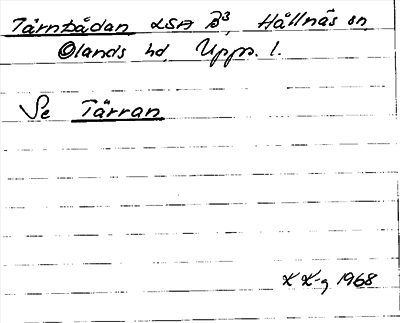 Tärnbådan LSA B³, Hållnäs sn,
Olands hd, Upps. l.
Se Tärran
K K-g 1968